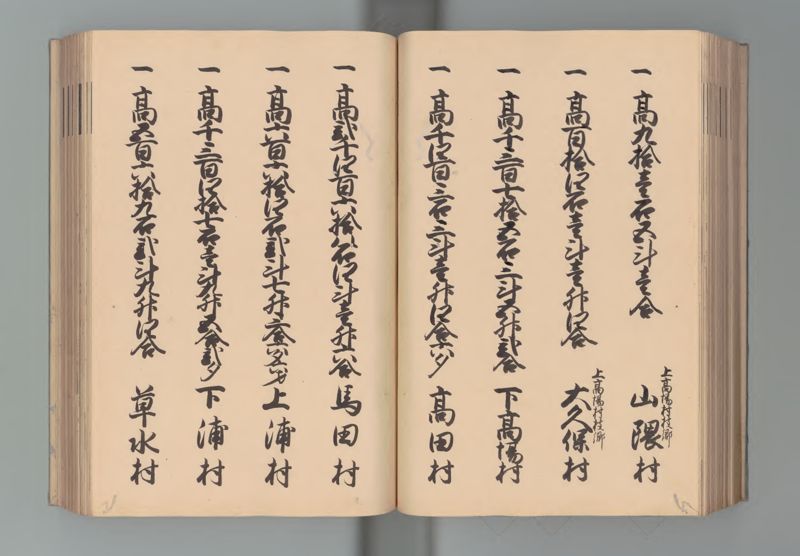 一 高九拾壱石五斗壱合 上高場村枝郷 山隈村
一 高百拾四石壱斗壱升四合 上高場村枝郷 大久保村
一 高千三百七拾五石三斗五升弐合 下高場村
一 高千四百三石三斗壱升四合六夕 高田村
一 高弐千四百六拾八石四斗壱升六合 馬田村
一 高六百六拾四石弐斗七升三合六夕五才 上浦村
一 高千三百四拾七石壱斗九升五合弐夕 下浦村
一 高五百六拾九石弐斗九升四合 草水村